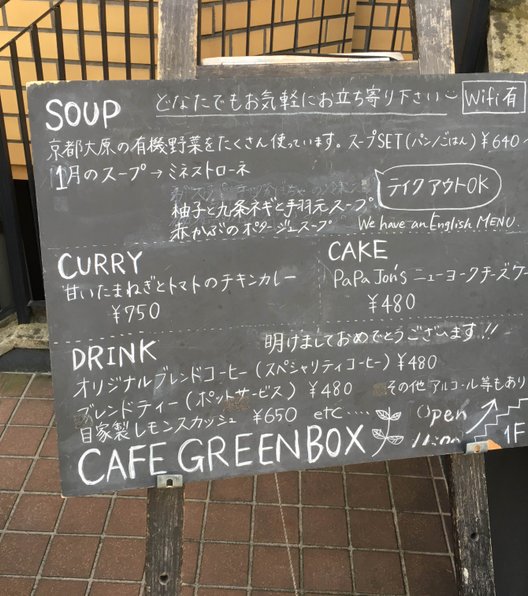 SOUP どなたでもお気軽にお立ち寄り下さい Wifi有
京都大原の有機野菜をたくさん使っています。スープSET(パン/ごはん)¥640~
1月のスープ→ミネストローネ
柚子と九条ネギと手羽元スープ
赤かぶのポタージュスープ
テイクアウトOK
We have an English MENU
CURRY
甘いたまねぎとトマトのチキンカレー
¥750
CAKE
PaPa Jon's ニューヨークチーズケ
¥480
明けましておめでとうございます!!
DRINK
オリジナルブレンドコーヒー(スペシャリティコーヒー)¥480
ブレンドティー(ポットサービス)¥480 その他アルコール等もあり
自家製レモンスカッシュ ¥650 etc....
Open
1F
CAFE GREENBOX